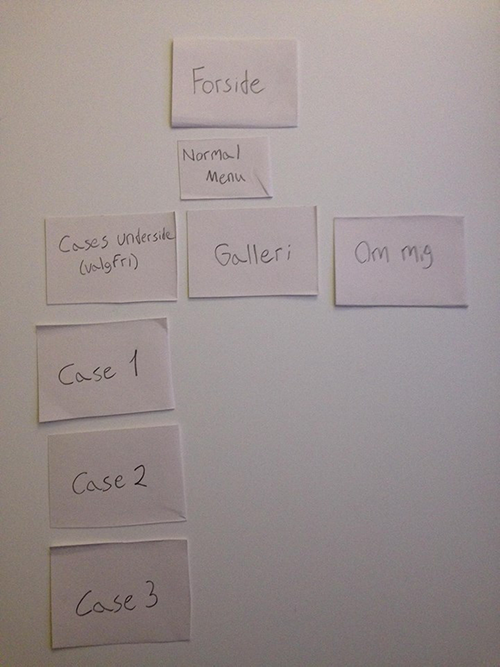 Forside
Normal
Menu
Cases underside
(valgfri)
Galleri
Om mig
Case 1
Case 2
Case 3